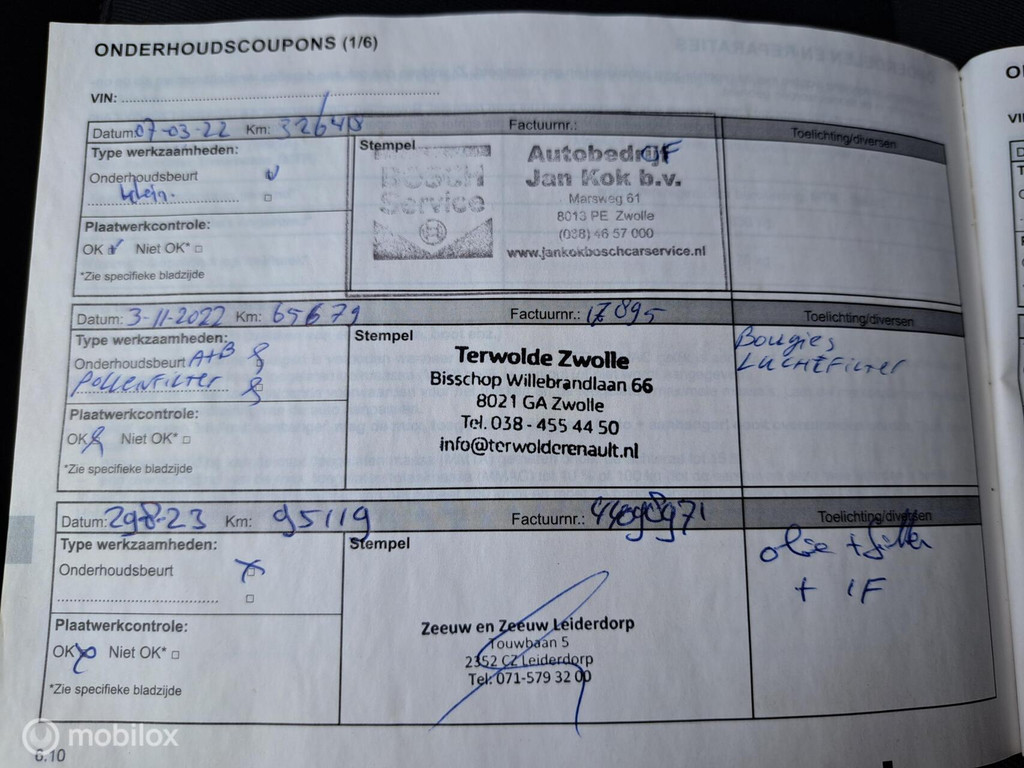 ONDERHOUDSCOUPONS (1/6)
VIN:
Datum: 07-03-22 Km: 32640 Factuurnr.: Toelichting/diversen
Type werkzaamheden:
Onderhoudsbeurt
klein.
Plaatwerkcontrole:
OK Niet OK*
*Zie specifieke bladzijde
Stempel
BOSCH
Service
Autobedrijf
Jan Kok b.v.
Marsweg 61
8013 PE Zwolle
(038) 46 57 000
www.jankokboschcarservice.nl
Datum: 3-11-2022 Km: 65679 Factuurnr.: 17895 Toelichting/diversen
Type werkzaamheden:
Onderhoudsbeurt A+B
Pollenfilter
Plaatwerkcontrole:
OK Niet OK*
*Zie specifieke bladzijde
Stempel
Terwolde Zwolle
Bisschop Willebrandlaan 66
8021 GA Zwolle
Tel. 038 - 455 44 50
info@terwolderenault.nl
Bougies
Luchtfilter
Datum: 29-8-23 Km: 95119 Factuurnr.: Toelichting/diversen
Type werkzaamheden:
Onderhoudsbeurt
Plaatwerkcontrole:
OK Niet OK*
*Zie specifieke bladzijde
Stempel
Zeeuw en Zeeuw Leiderdorp
Touwbaan 5
2352 CZ Leiderdorp
Tel. 071-579 32 00
olie + filter
+ IF
6.10
mobilox